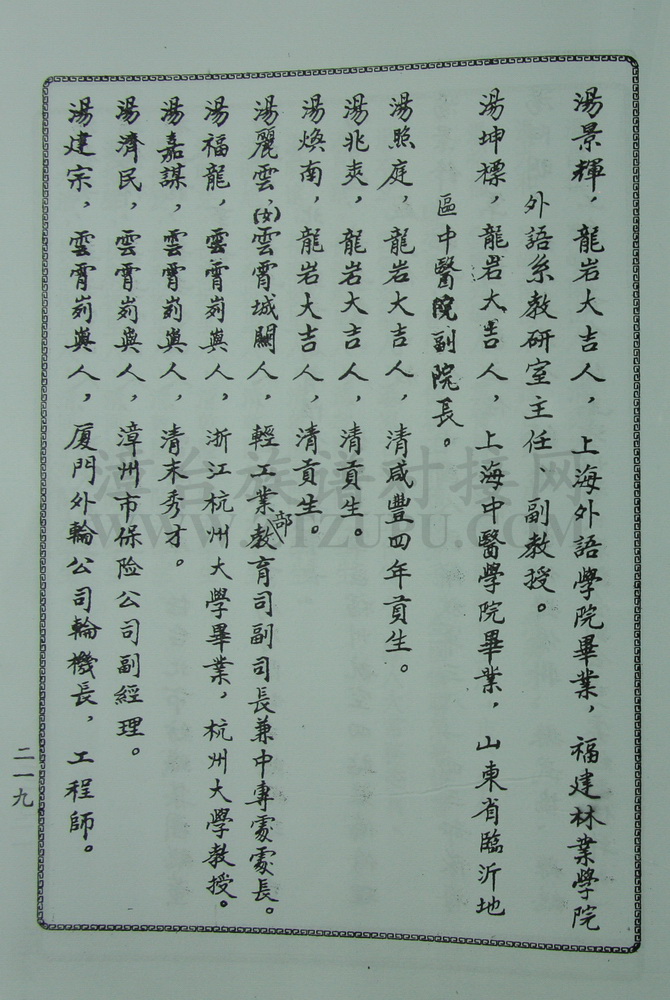 湯景輝，龍岩大吉人，上海外語學院畢業，福建林業學院
外語系教研室主任、副教授。
湯坤標，龍岩大吉人，上海中醫學院畢業，山東省臨沂地
區中醫院副院長。
湯照庭，龍岩大吉人，清咸豐四年貢生。
湯兆奕，龍岩大吉人，清貢生。
湯煥南，龍岩大吉人，清貢生。
湯麗雲，(女)雲霄城關人，輕工業部教育司副司長兼中專處處長。
湯福龍，雲霄莂輿人，浙江杭州大學畢業，杭州大學教授。
湯嘉謀，雲霄莂輿人，清末秀才。
湯濟民，雲霄莂輿人，漳州市保险公司副經理。
湯建宗，雲霄莂輿人，厦门外輪公司輪機長，工程師。
二一九
漳台族谱对接网